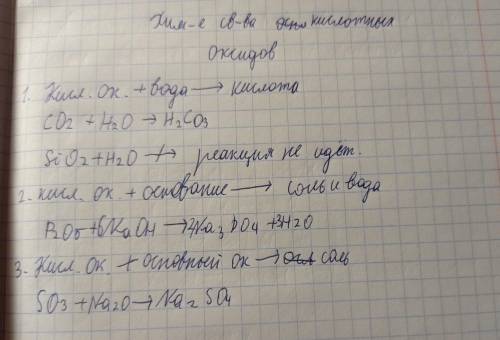 Хим-е св-ва кислотных
оксидов
1. Кисл. ок. + вода → кислота
CO2 + H2O → H2CO3
SiO2 + H2O ↛ реакция не идёт.
2. кисл. ок. + основание → соль и вода
+6NaOH → 2Na3PO4 + 3H2O
3. Кисл. ок. + основный ок → соль
SO3 + Na2O → Na2SO4